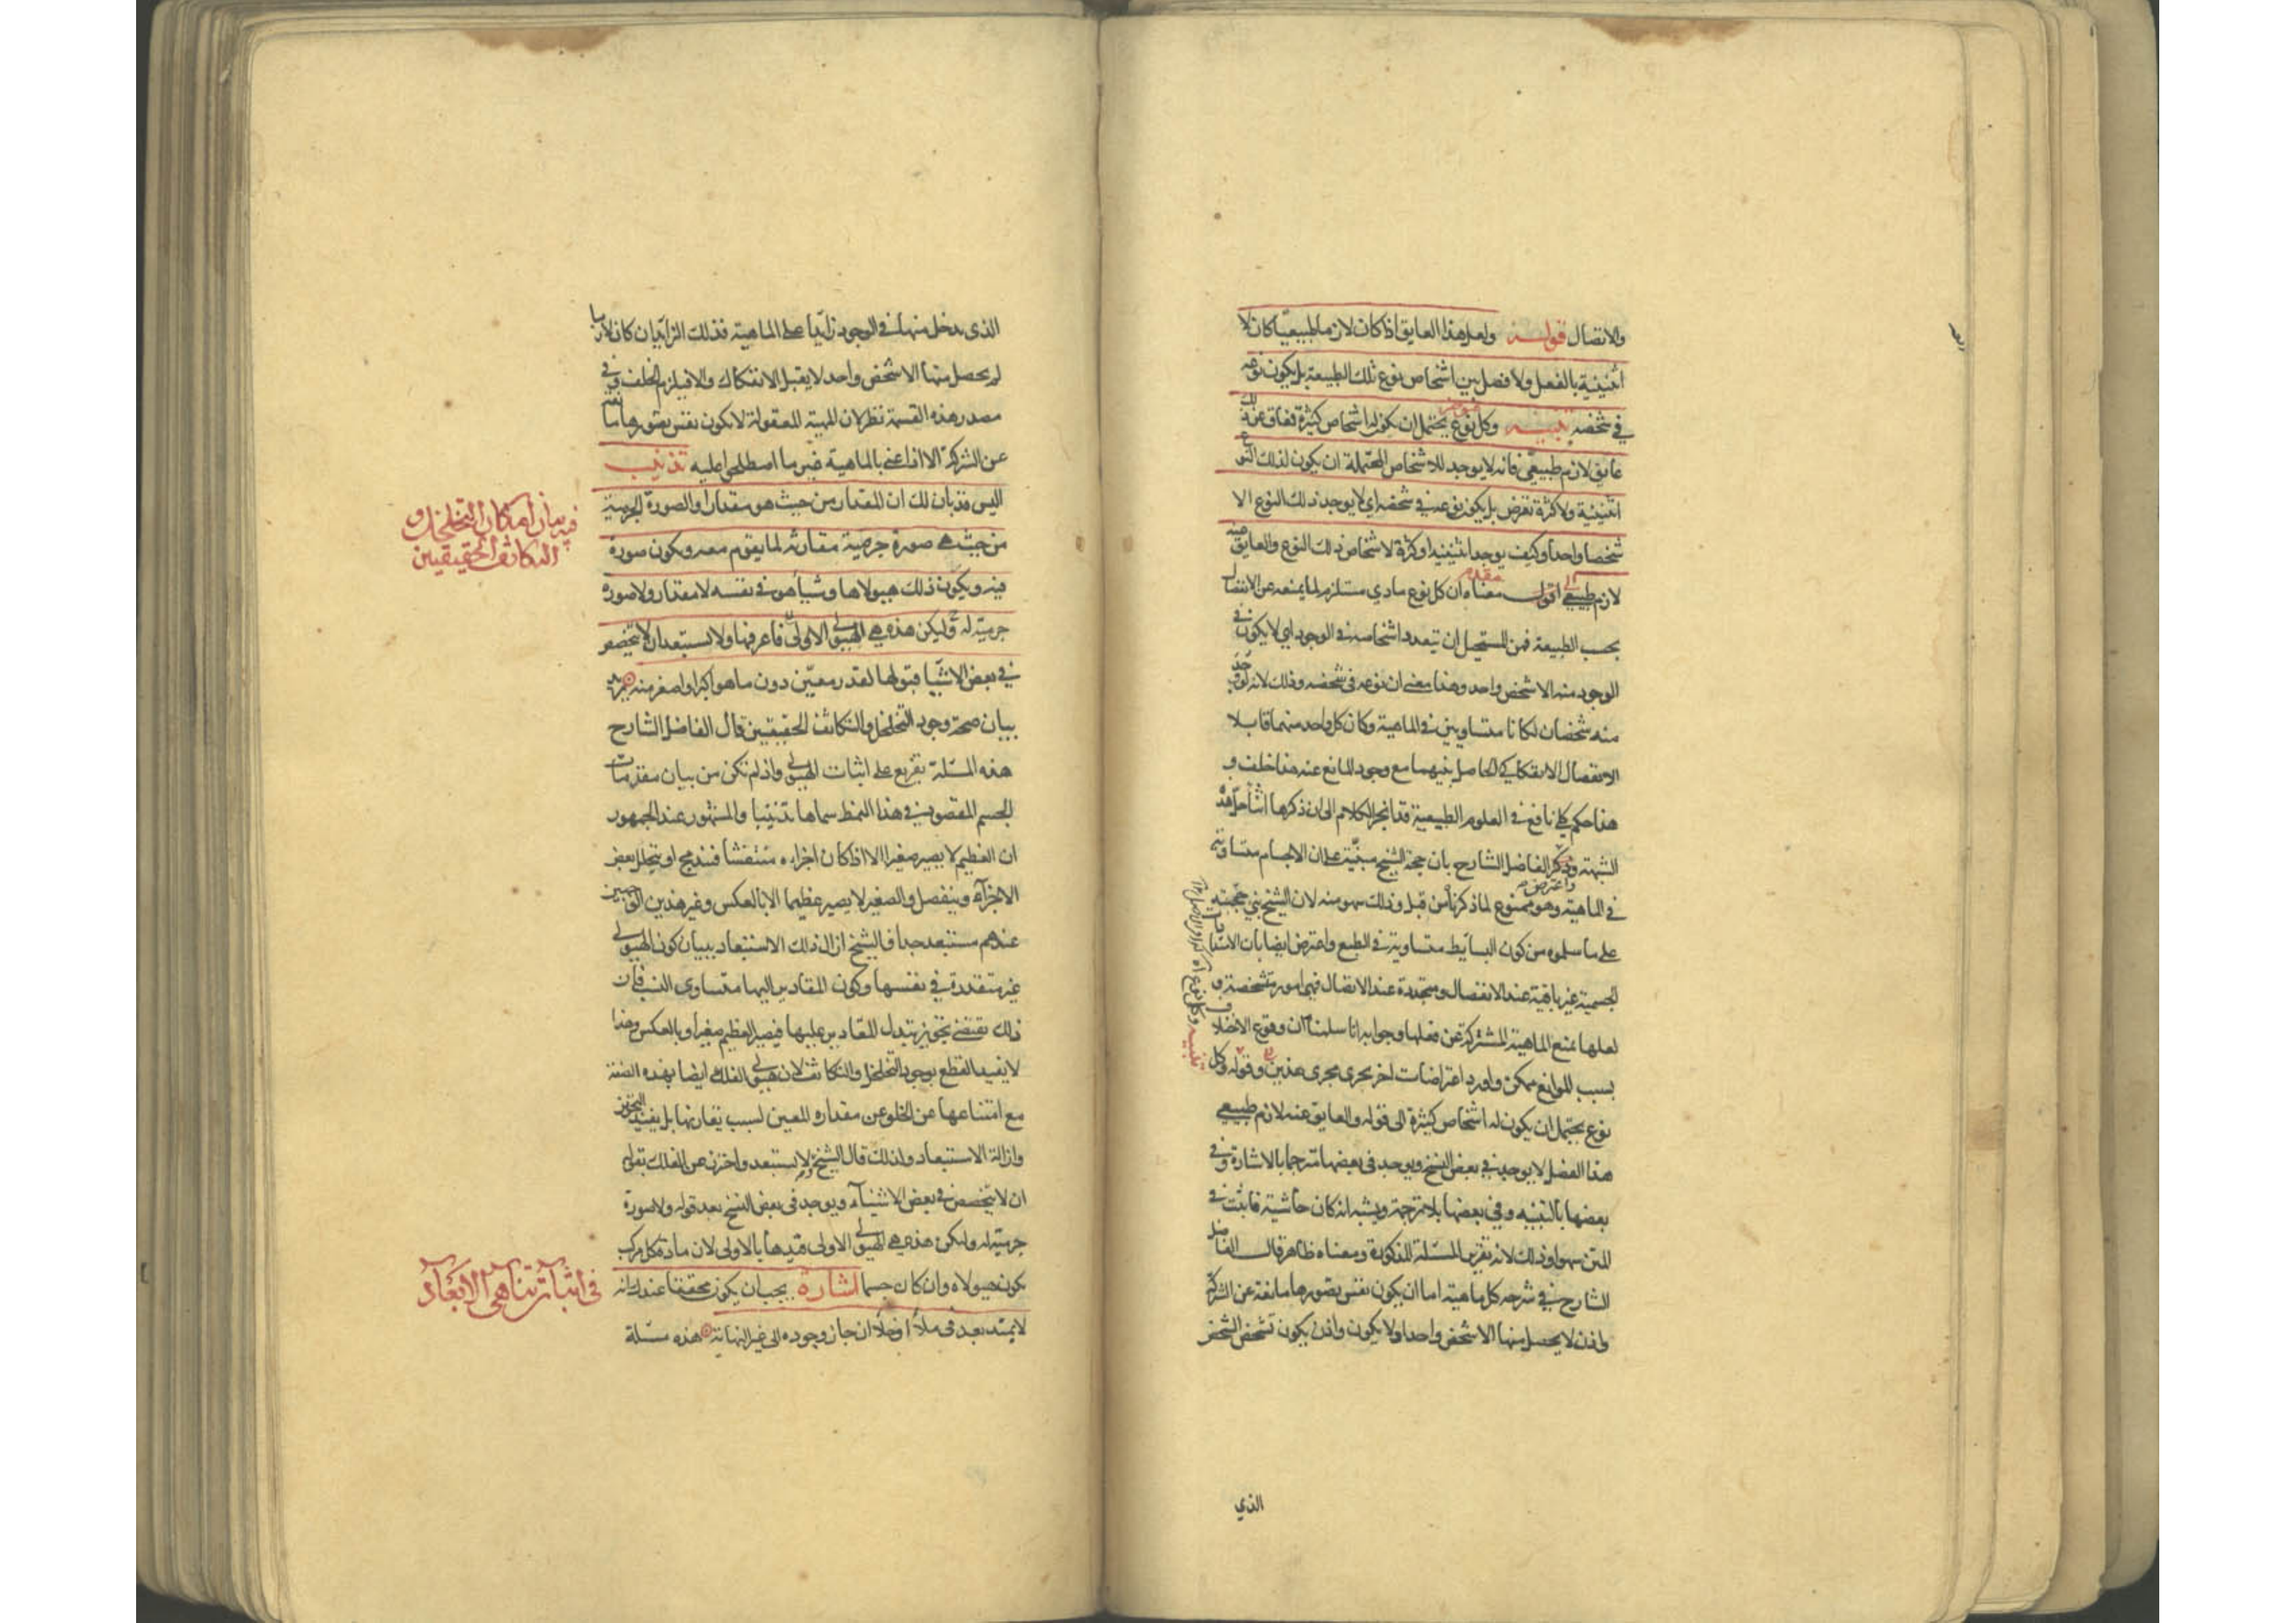 والاتصال قوله ولعل هذا العايق اذا كان لازما طبيعيا كان لا
اثنينية بالفعل ولا فصل بين اشخاص نوع تلك الطبيعة بل يكون نوعه
في شخصه تنبيه وكل نوع يحتمل ان يكون له اشخاص كثيرة فعاق عن ذلك
عايق لازم طبيعي فانه لا يوجد للاشخاص المحتملة ان يكون لذلك النوع
اثنينية ولا كثرة تفرض بل يكون نوعه في شخصه اي لا يوجد ذلك النوع الا
شخصا واحدا وكيف يوجد اثنينية او كثرة لاشخاص ذلك النوع والعايق عنه
لازم طبيعي اقول معناه ان كل نوع مادي مستلزم لما يمنعه عن الانفصال
بحسب الطبيعة فمن المستحيل ان يتعدد اشخاصه في الوجود اي لا يكون في
الوجود منه الا شخص واحد وهذا معنى ان نوعه في شخصه وذلك لانه لو وجد
منه شخصان لكانا متساويين في الماهية وكان كل واحد منهما قابلا
الانفصال الانفكاكي الحاصل بينهما مع وجود المانع عنه هذا خلف و
هذا حكم كلي نافع في العلوم الطبيعية قد انجر الكلام الى ان ذكرها اثنا حل هذه
الشبهة وذكر الفاضل الشارح بان حجة الشيخ مبنية على ان الاجسام متساوية
واعترض
في الماهية وهو ممنوع لما ذكرناه من قبل وذلك سهو منه لان الشيخ بنى حجته
على ما سلموه من كون البسايط متساوية في الطبع واعترض ايضا بان الامتدادات
الجسمية غير باقية عند الانفصال ومتجددة عند الاتصال فهي امور متشخصة و
لعلها تمنع الماهية المشتركة عن فعلها وجوابه انا سلمنا ان وقوع الاختلاف
بسبب الموانع ممكن واورد اعتراضات اخر يجري مجرى هذين وقوله وكل
نوع يحتمل ان يكون له اشخاص كثيرة الى قوله والعايق عنه لازم طبيعي
هذا الفصل لا يوجد في بعض النسخ ويوجد في بعضها مترجما بالاشارة وفي
بعضها بالتنبيه وفي بعضها بلا ترجمة ويشبه انه كان حاشية فاثبت في
المتن سهوا وذلك لانه تقرير المسئلة المذكورة ومعناه ظاهر قال الفاضل
الشارح في شرحه كل ماهية اما ان يكون نفس تصورها مانعة عن الشركة
واذن لا يحصل منها الا شخص واحد او لا يكون واذن يكون تشخص الشخص
الذي
الذي يدخل منها في الوجود زائدا على الماهية فذلك الزائد ان كان لازما
لم يحصل منها الا شخص واحد لا يقبل الانفكاك والا فيلزم الخلف وفي
مصدر هذه القسمة نظر لان المهية المعقولة لا يكون نفس تصورها مانعا
عن الشركة الا اذا عني بالماهية غير ما اصطلح عليه تذنيب
اليس قد بان لك ان المقدار من حيث هو مقدار او الصورة الجرمية
من حيث هي صورة جرمية مقارنة لما يقوم معه ويكون صورة
فيه ويكون ذلك هيولاها وشيأ هو في نفسه لا مقدار ولا صورة
جرمية له وليكن هذه هي الهيولى الاولى فاعرفها ولا تستبعد ان لا يتخصص
في بعض الاشيا قبولها لقدر معين دون ما هو اكبر او اصغر منه
بيان صحة وجود التخلخل والتكاثف الحقيقيين قال الفاضل الشارح
هذه المسئلة تفريع على اثبات الهيولى واذ لم تكن من بيان مقدمات
الجسم المقصود في هذا النمط سماها تذنيبا والمشهور عند الجمهور
ان العظيم لا يصير صغيرا الا اذا كان اجزاءه منتفشا فتندمج او يتحلل بعض
الاجزاء وينفصل والصغير لا يصير عظيما الا بالعكس وغير هذين الوجهين
عندهم مستبعد جدا فالشيخ ازال ذلك الاستبعاد ببيان كون الهيولى
غير متقدرة في نفسها وكون المقادير اليها متساوى النسب فان
ذلك يقتضي تجويز تبدل المقادير عليها فيصير العظيم صغيرا وبالعكس وهذا
لا يفيد القطع بوجود التخلخل والتكاثف لان هيولى الفلك ايضا بهذه الصفة
مع امتناعها عن الخلو عن مقداره المعين لسبب يقارنها بل يفيد التجويز
وازالة الاستبعاد ولذلك قال الشيخ ولا تستبعد واحترز عن الفلك بقوله
ان لا يتخصص في بعض الاشياء ويوجد في بعض النسخ بعد قوله ولا صورة
جرمية له ولتكن هذه هي الهيولى الاولى قيدها بالاولى لان مادة كل مركب
يكون هيولاه وان كان جسما اشارة يجب ان يكون محققا عندك انه
لا يمتد بعد في ملأ او خلأ ان جاز وجوده الى غير النهاية هذه مسئلة
فيه بيان امكان التخلخل و
التكاثف الحقيقيين
في اثبات تناهي الابعاد